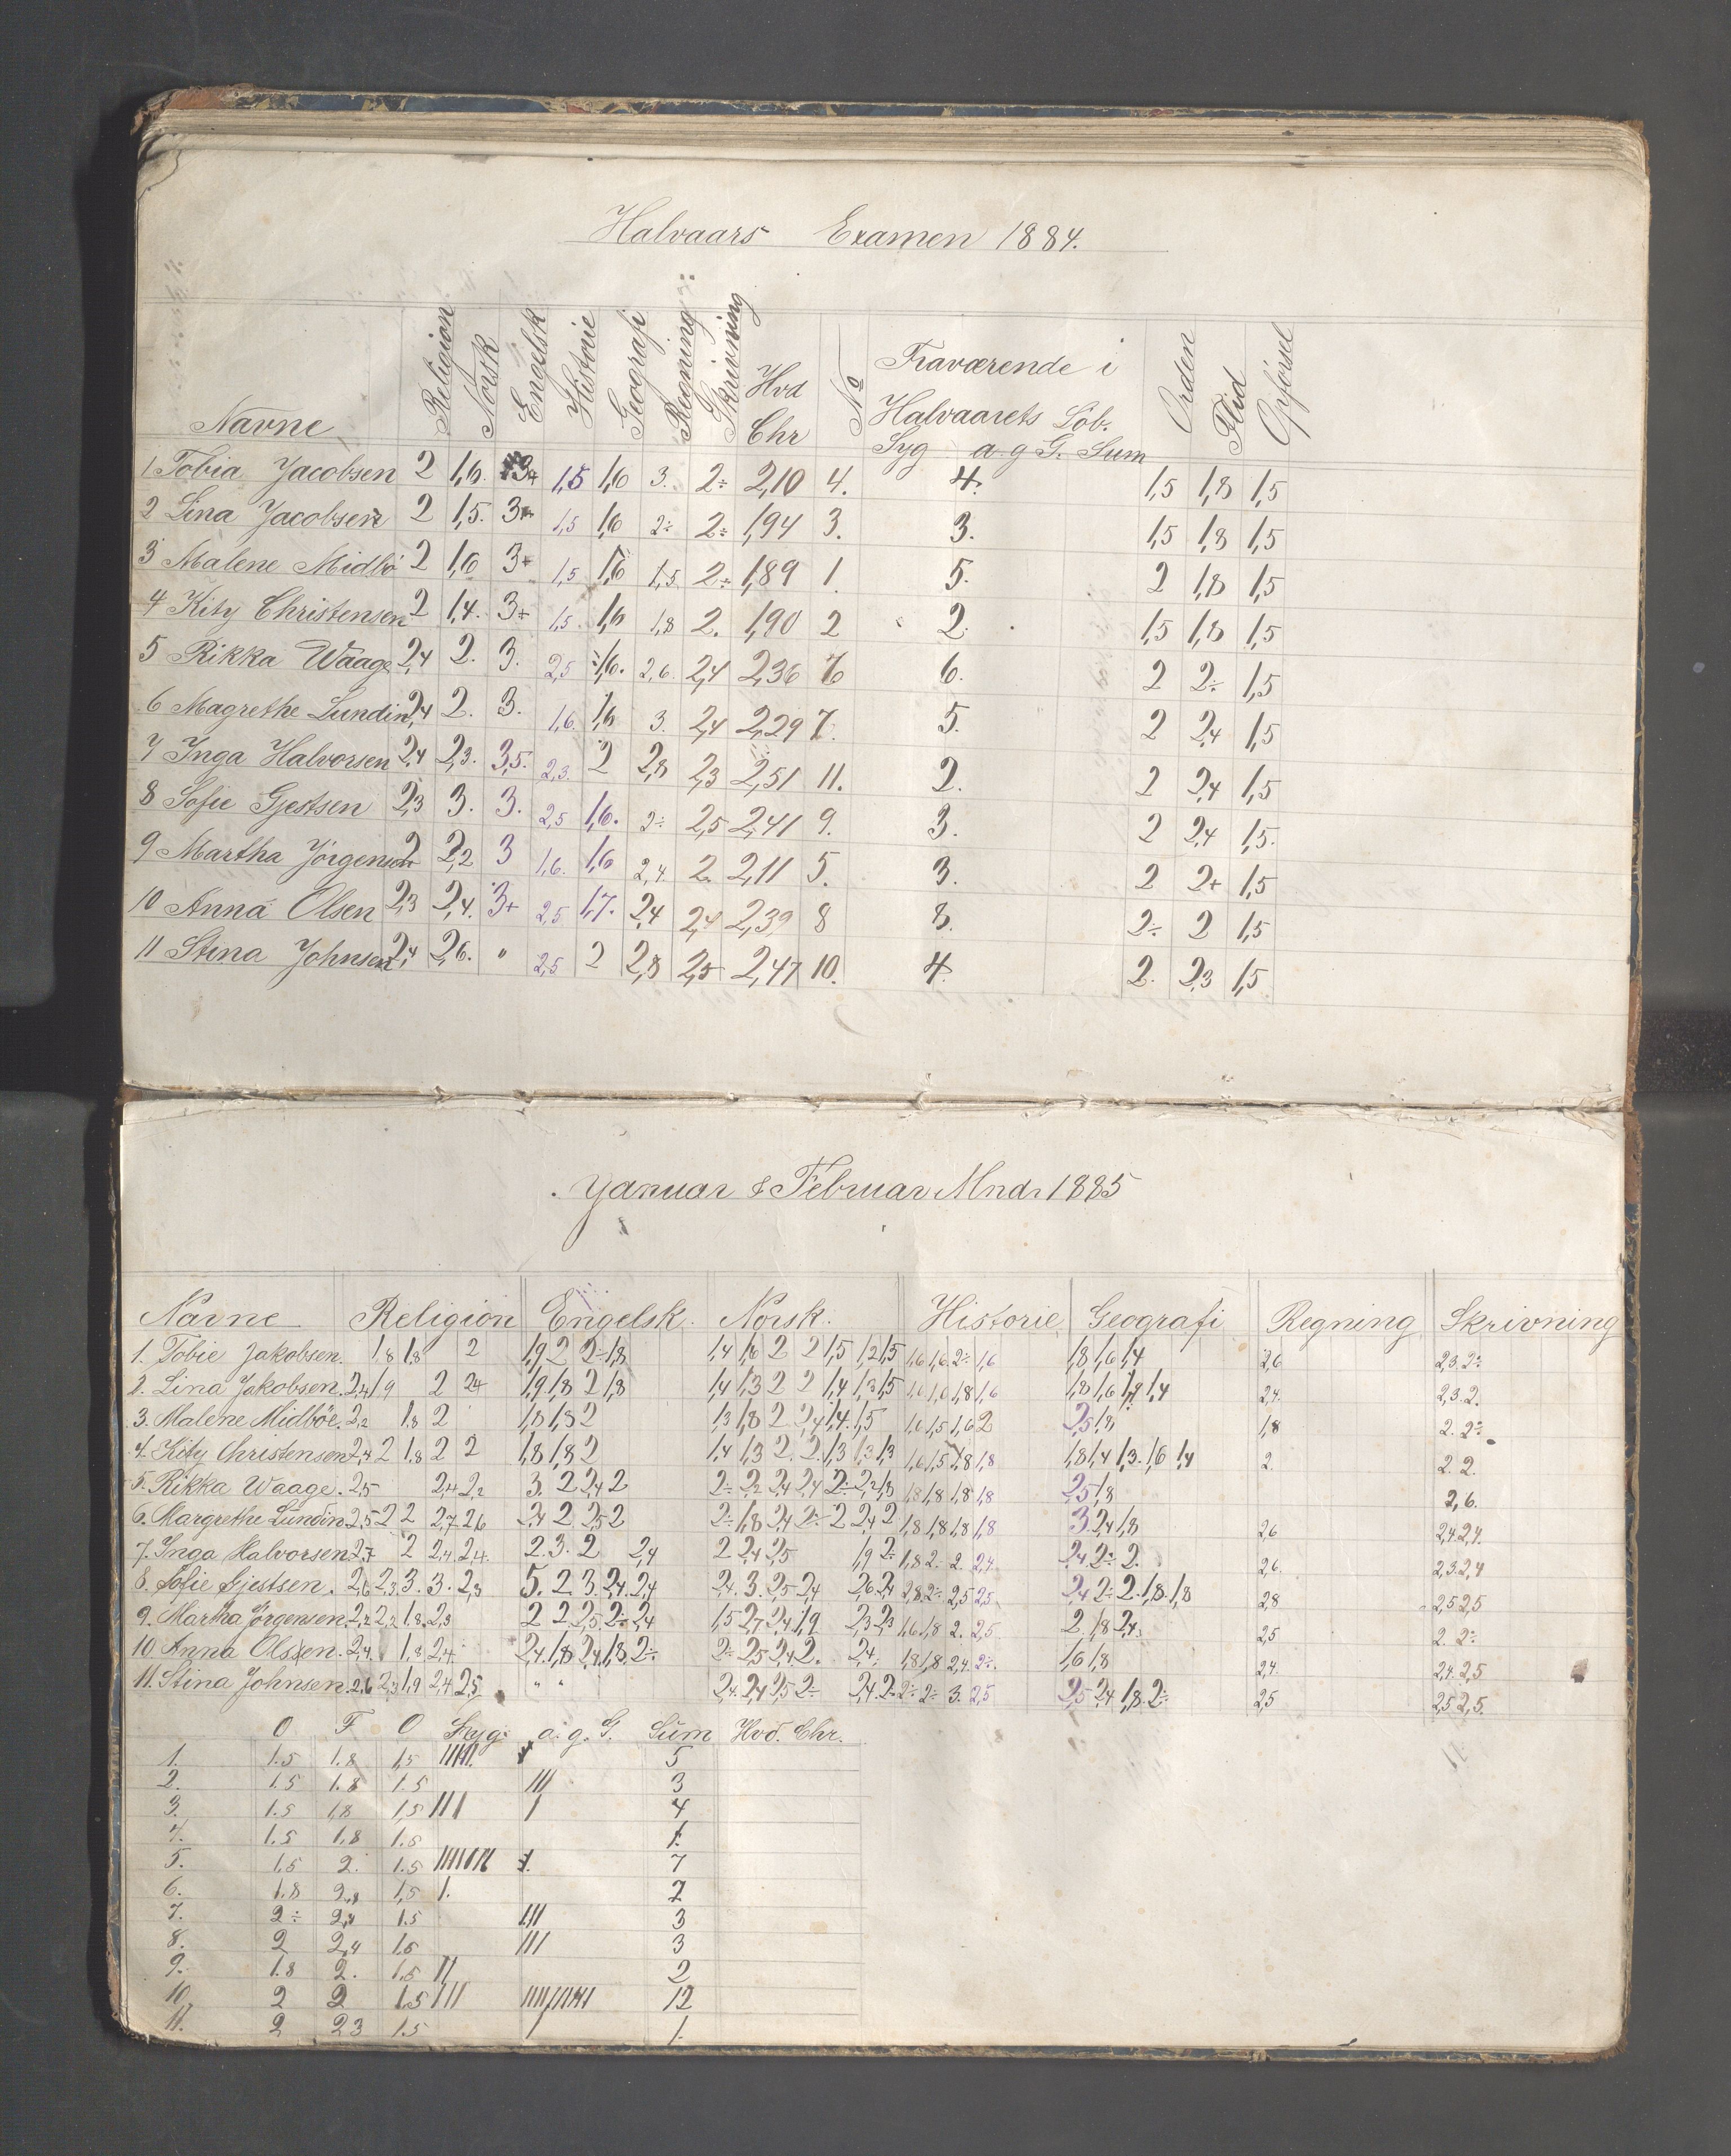 Halvaars Examen 1884.
Navne Religion Norsk Engelsk Historie Geografi Regning Skrivning Hvd Chr No Fraværende i Halvaarets Löb. Syg a. g G. Sum Orden Flid Opförsel
1 Tobia Jacobsen 2 1,6. 3+ 1,5 1,6 3. 2÷ 2,10 4. 4. 1,5 1,8 1,5
2 Lina Jacobsen 2 1,5. 3+ 1,5 1,6 2÷ 2÷ 1,94 3. 3. 1,5 1,8 1,5
3 Malene Midbö 2 1,6 3+ 1,5 1,6 1,5 2÷ 1,89 1. 5. 2 1,8 1,5
4 Kity Christensen 2 1,4. 3+ 1,5. 1,6 1,8 2. 1,90 2 2. 1,5 1,8 1,5
5 Rikka Waage 2,4 2. 3. 2,5 1,6. 2,6. 2,4 2,36 6. 2 2÷ 1,5
6 Magrethe Lundin 2,4 2. 3. 1,6. 1,6 3. 2,4 2,29 7. 5. 2 2,4 1,5
7 Inga Halvorsen 2,4 2,3. 3,5. 2,3. 2 2,8 2,3 2,51 11. 2. 2 2,4 1,5
8 Sofie Gjestsen 2,3 3. 3. 2,5 1,6. 2÷ 2,5 2,41 9. 3. 2 2,4 1,5.
9 Martha Jörgensen 2 2,2 3 1,6. 1,6 2,4. 2. 2,11 5. 3. 2 2+ 1,5
10 Anna Olsen 2,3 2,4. 3+ 2,5 1,7. 2,4 2,4 2,39 8 8. 2÷ 2 1,5
11 Stina Johnsen 2,4 2,6. " 2,5 2 2,8 2,5 2,47 10. 4. 2. 2,3 1,5
Januar & Februar Mndr 1885
Navne Religion Engelsk. Norsk. Historie Geografi Regning Skrivning
1. Tobie Jakobsen. 1,8 1,8 2 1,9 2 2÷ 1,8 1,4 1,6 2 2 1,5 1,2 1,5 1,6 1,6 2÷ 1,6 1,8 1,6 1,4 2,6 2,3. 2÷
2. Lina Jakobsen. 2,4 1,9 2 2,4 1,9 1,8 2 1,8 1,4 1,3 2 2 1,4 1,3 1,5 1,6 1,6 1,8 1,6 1,8 1,6 1,4 1,4 2,4. 2,3. 2.
3. Malene Midböe. 2,2 1,8 2 1,8 1,8 2 1,3 1,8 2 2,4 1,4. 1,5 1,6 1,5 1,6 2 2,5 1,8 1,8 2. 2÷
4. Kity Christensen 2,4 2 1,8 2 2 1,8 1,8 2 1,4 1,3 2. 2. 1,3 1,3 1,3 1,6 1,5 1,8 1,8 1,8 1,4 1,3. 1,6 1,4 2. 2. 2.
5. Rikka Waage. 2,5 2,4 2,2 3. 2 2,4 2 2÷ 2,2 2,4 2,4 2÷ 2,2 1,8 1,8 1,8 1,8 1,8 2,5 1,8 2,6.
6. Margrethe Lundin 2,5 2 2 2,7 2,6 2,4 2 2,5 2 2÷ 1,8 2,4 2÷ 2 2,4 2 1,8 1,8 1,8 1,8 3 2,4 1,8 2,6 2,4. 2,4.
7. Inga Halvorsen 2,7 2 2,4. 2,4. 2. 3. 2 2,4 2 2,4 2,5 1,9 2÷ 1,8 2÷ 2. 2,4. 2,4 2÷ 2. 2,6. 2,3. 2,4
8. Sofie Gjestsen. 2,6 2,3 3. 3. 2,3 5. 2. 3. 2,4. 2,4 2,4. 3. 2,5 2,4 2,6 2,4 2,8 2÷ 2,5 2,5 2,4 2÷ 2. 1,8. 1,8 2,8 2,5 2,5
9. Martha Jörgensen. 2,2 2,2 1,8. 2,3 2 2 2,5 2÷ 2,4 1,5 2,7 2,4 1,9 2,3 2,3 1,6 1,8 2. 2,5 2. 1,8 2,4. 2,5 2. 2÷
10 Anna Olssen. 2,4. 1,8 2,4. 2,4. 1,8 2,4. 1,8. 2÷ 2÷ 2,5 2,4 2. 2,4. 1,8 1,8 2,4. 2÷. 1,6 1,8 2,4. 2,4. 2,5
11. Stina Johnsen. 2,6 2,3 1,9 2,4 2,5 " " 2,4. 2,4 2,5 2÷ 2,4. 2÷ 2÷ 2÷ 3. 2,5 2,5 2,4 1,8. 2÷ 2,5 2,5 2,5.
O F O Syg. a. g. G. Sum Hvd. Chr.
1. 1.5 1.8 1,5 5
2. 1.5 1.8 1.5 /// 3
3. 1.5 1,8 1,5 /// / 4
4. 1.5 1,8 1.5 1.
5. 1,5 2. 1.5 7
6. 1.8 2,4 1,5 1. 2
7. 2÷ 2,4 1.5 /// 3
8. 2 2,4 1.5 /// 3
9. 1.8 2. 1,5 // 2
10. 2 2 1.5 /// 12
11. 2 2 3 1.5 / 1.